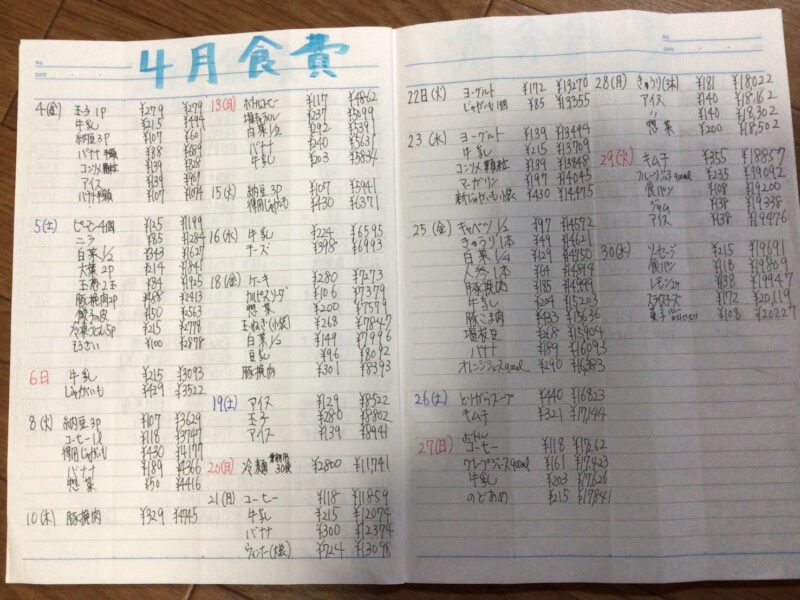 4月食費
4(金) 玉子1P ¥279 ¥279
牛乳 ¥215 ¥494
納豆3P ¥107 ¥601
バナナ ¥88 ¥689
コンソメ顆粒 ¥139 ¥828
アイス ¥139 ¥967
バナナ ¥107 ¥1074
5(土) ピーマン4個 ¥125 ¥1199
ニラ ¥85 ¥1284
白菜1/2 ¥343 ¥1627
大葉2P ¥214 ¥1841
玉巻2玉 ¥84 ¥1925
豚挽肉2P ¥2413
餃子の皮 ¥150 ¥2563
冷凍うどん5P ¥215 ¥2778
そうざい ¥100 ¥2878
6日 牛乳 ¥215 ¥3093
じゃがいも ¥429 ¥3522
8(火) 納豆3P ¥107 ¥3629
コーヒー1l ¥118 ¥3747
徳用じゃがいも ¥430 ¥4177
バナナ ¥189 ¥4366
惣菜 ¥50 ¥4416
10(木) 豚挽肉 ¥329 ¥4745
13(日) ボトルコーヒー ¥117 ¥4862
¥237 ¥5099
白菜1/2 ¥292 ¥5391
バナナ ¥240 ¥5631
牛乳 ¥203 ¥5834
15(火) 納豆3P ¥107 ¥5941
徳用じゃがいも ¥430 ¥6371
16(水) 牛乳 ¥224 ¥6595
チーズ ¥398 ¥6993
18(金) ケーキ ¥280 ¥7273
¥106 ¥7379
惣菜 ¥200 ¥7579
玉ねぎ(小袋) ¥268 ¥7847
白菜1/2 ¥149 ¥7996
豆乳 ¥96 ¥8092
豚挽肉 ¥301 ¥8393
19(土) アイス ¥129 ¥8522
玉子 ¥280 ¥8802
アイス ¥139 ¥8941
20(日) 冷麺 業務用30袋 ¥2800 ¥11741
21(月) コーヒー ¥118 ¥11859
牛乳 ¥215 ¥12074
バナナ ¥300 ¥12374
ウィンナー(大袋) ¥724 ¥13098
22日(火) ヨーグルト ¥172 ¥13270
じゃがいも1個 ¥85 ¥13355
23(水) ヨーグルト ¥139 ¥13494
牛乳 ¥215 ¥13709
コンソメ顆粒 ¥139 ¥13848
マーガリン ¥197 ¥14045
新じゃがいも小袋 ¥430 ¥14475
25(金) キャベツ1/2 ¥97 ¥14572
きゅうり1本 ¥49 ¥14621
白菜1/4 ¥129 ¥14750
人参1本 ¥64 ¥14814
豚挽肉 ¥185 ¥14999
牛乳 ¥204 ¥15203
豚こま肉 ¥433 ¥15636
塩枝豆 ¥268 ¥15904
バナナ ¥189 ¥16093
オレンジジュース900ml ¥290 ¥16383
26(土) とりがらスープ ¥440 ¥16823
キムチ ¥321 ¥17144
27(日) ボトルコーヒー ¥118 ¥17262
グレープジュース900ml ¥161 ¥17423
牛乳 ¥203 ¥17626
のどあめ ¥215 ¥17841
28(月) きゅうり(3本) ¥181 ¥18,022
アイス ¥140 ¥18,162
〃 ¥140 ¥18,302
惣菜 ¥200 ¥18,502
29(火) キムチ ¥355 ¥18857
フルーツジュース900ml ¥235 ¥19092
食パン ¥108 ¥19200
ジャム ¥138 ¥19338
アイス ¥138 ¥19476
30(水) ソーセージ ¥215 ¥19691
食パン ¥118 ¥19809
レモン2ケ ¥138 ¥19947
スライスチーズ ¥172 ¥20,119
菓子 ¥108 ¥20227